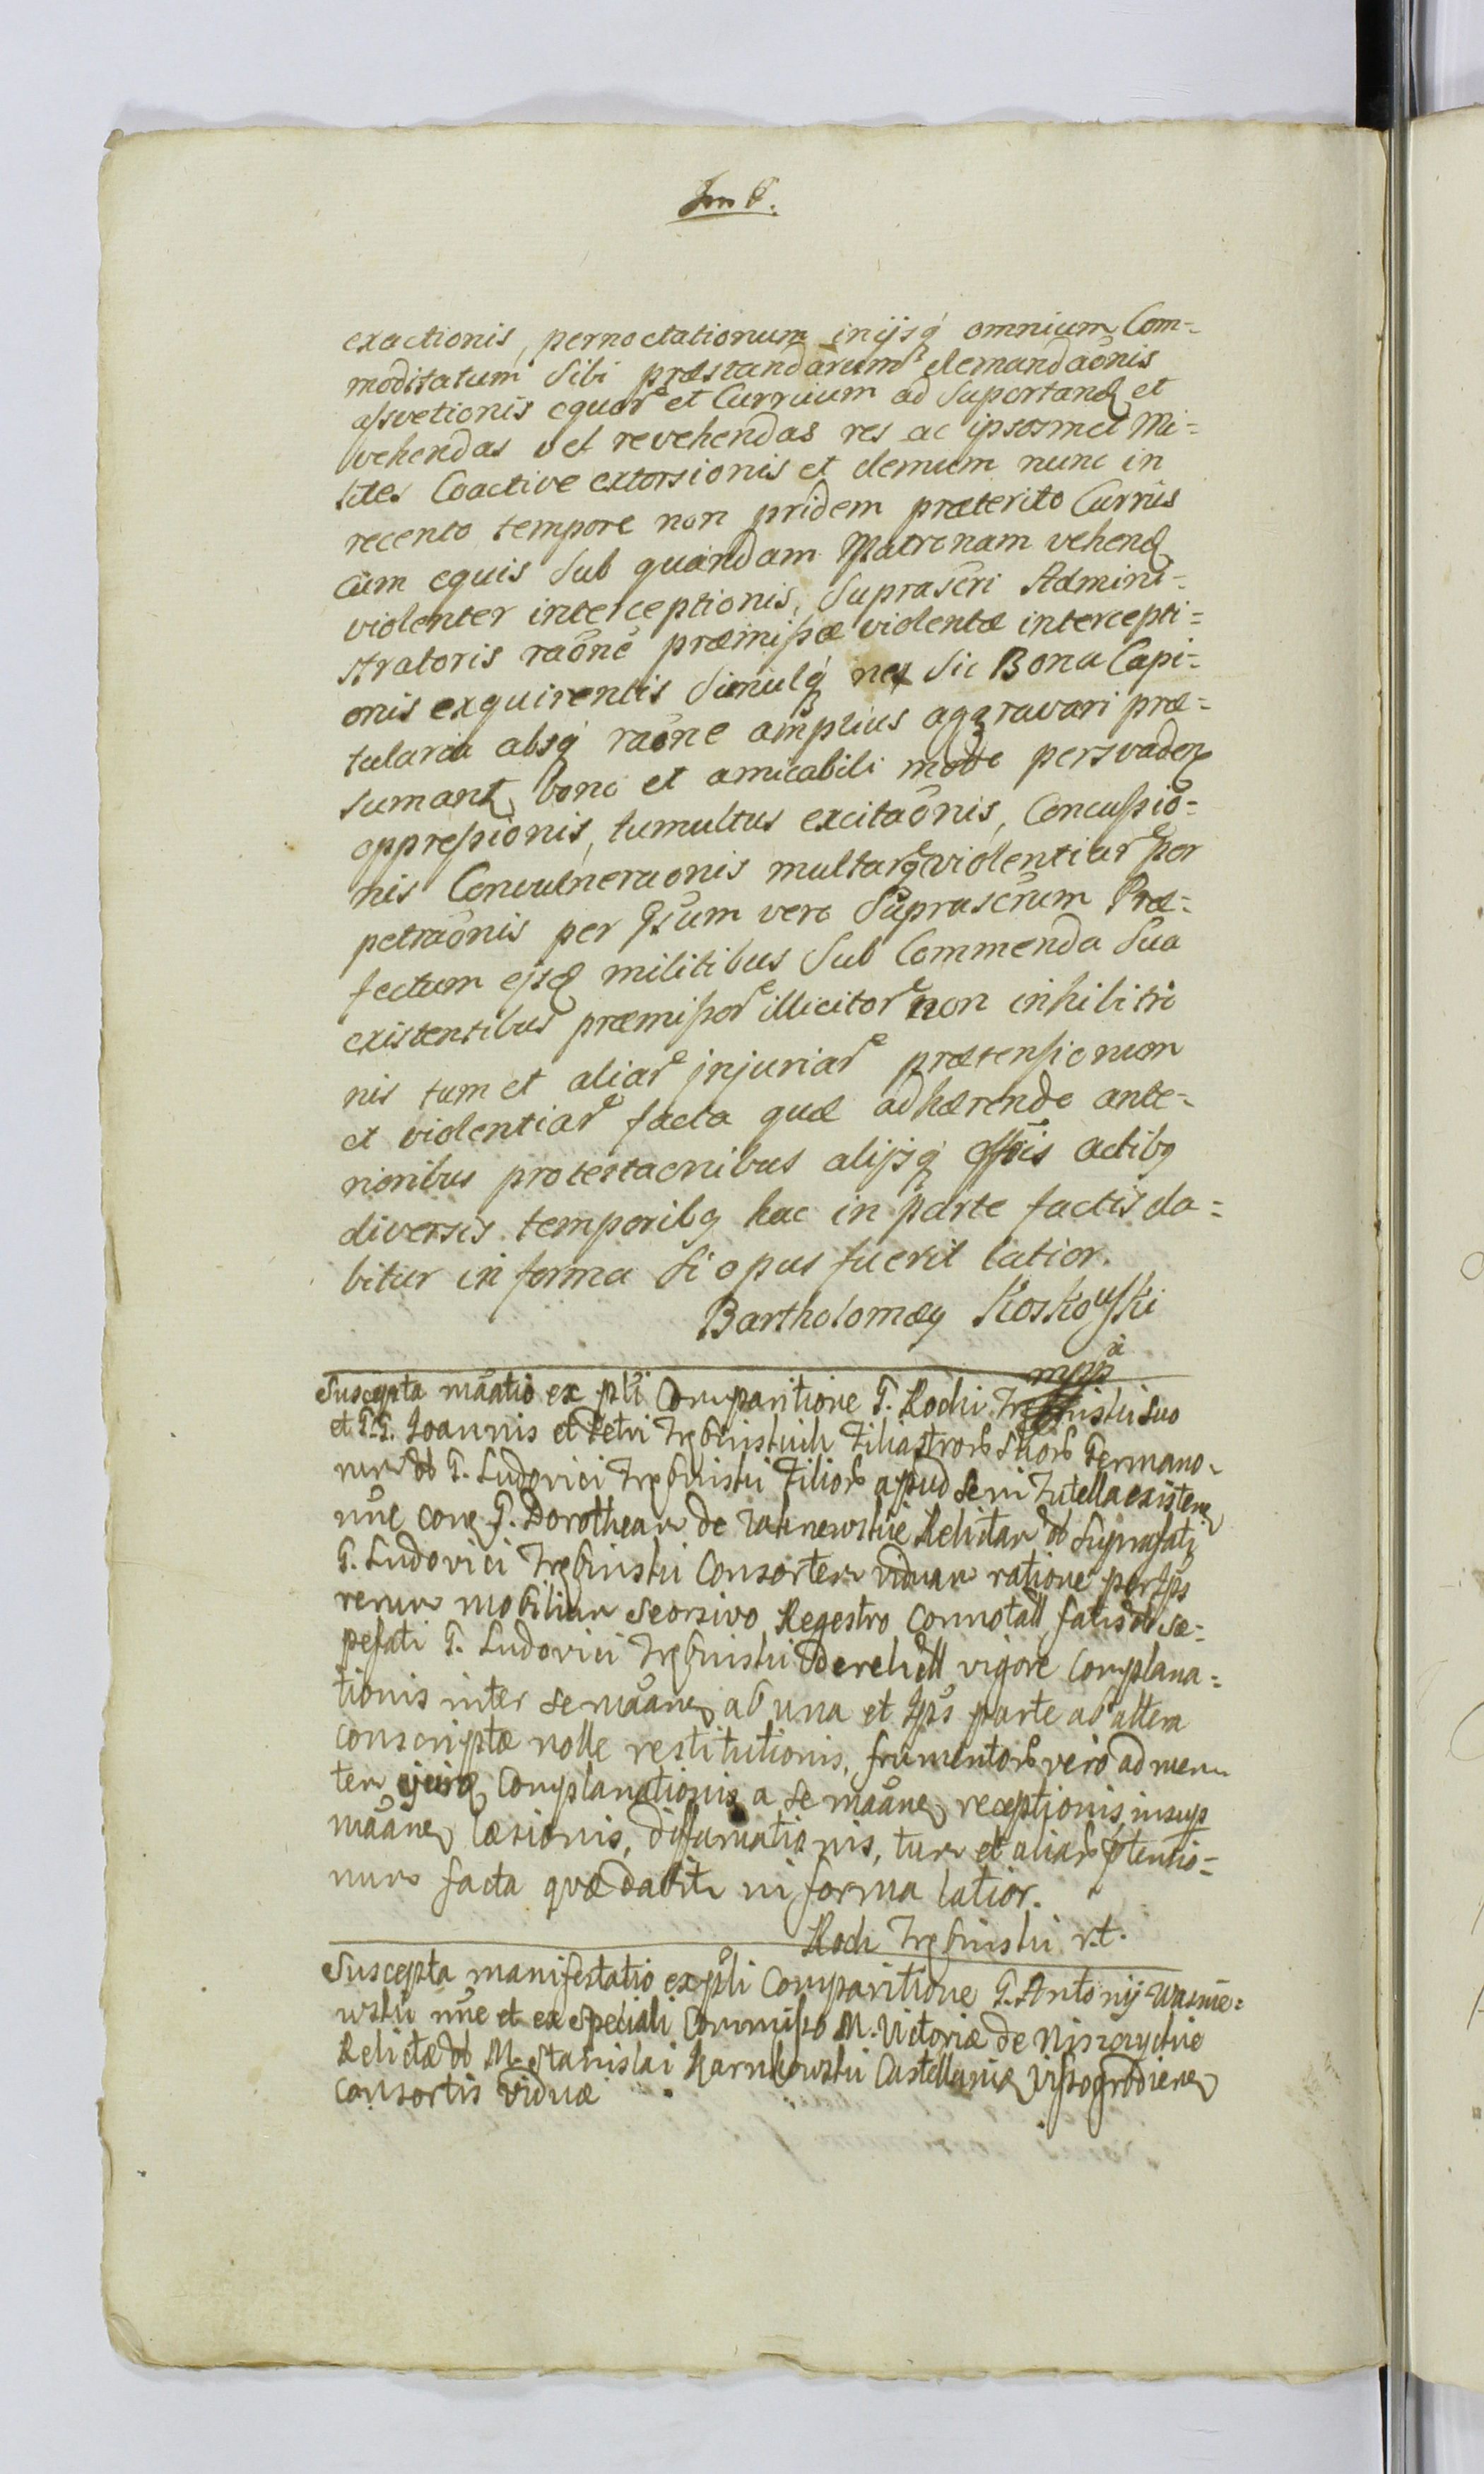 exactionis, pernoctationum inijsq́ omnium Com=
moditatum sibi præstandarum demandaōnis
assvetionis equor̃ et Curruum ad suportandꝫ et
vehendas vel revehendas res ac ipsosmet Mi=
lites Coactive extorsionis et demum nunc in
recento tempore non pridem præterito Currus
cum equis sub quandam Matronam vehendꝫ
violenter interceptionis, suprascri Admini=
stratoris raōne præmissæ violentæ intercepti=
onis exquirentis simulq́ neq sic Bona Capi=
tularia absq́ raōne amplius aggravari præ=
sumant bono et amicabili modo persvadenꝫ
oppressionis, tumultus excitaōnis, Concussio=
nis Convulneraonis multarq̃ violentiar̃ per
petraōnis per Ipsum vero suprascrum Præ=
fectum ejsdꝫ militibus sub Commenda sua
existentibus præmissor̃ illicitor̃ non inhibitio
nis tum et aliar̃ injuriar̃ prætensionum
et violentiar̃ facta quæ adhærendo ante=
rioribus protestaonibus alijsq́ offīs actibꝫ
diversis temporibꝫ hac in parte factis da=
bitur in forma si opus fuerit latior.
Bartholomæꝫ Koskowski
mppa
Suscepta māatio ex pñli Comparitione G. Rochi Trębinski suo
et G.G. Joannis et Petri Trębinskich Filiastror̃ suor̃ Germano
rum olim G. Ludovici Trębinski Filior̃ apud se in Tutella existenꝫ
nñe conꝫ G. Dorotheam de Relictam olim suprafati
G. Ludovici Trębinski Consortem viduam ratione per Ips
rerum mobilium seorsivo Regestro Connotatt fatis olim sæ=
pefati G. Ludovici Trębinski derelictt vigore Complana=
tionis inter se māanꝫ ab una et Ips parte ab altera
conscriptæ nolle restitutionis, frumentor̃ vero ad men
tem ejusdꝫ Complanationis a se māanꝫ receptionis, insup
māanꝫ læsionis, diffamationis, tum et aliar̃ ptensio=
num facta quæ dabitr in forma latior.
Roch Trębinski r.t.
Suscepta manifestatio ex pñli Comparitione G. Antonij Wasnie=
wski nñe et ex speciali Commisso M. Victoriæ de Niszczyckie
Relictæ olim M. Stanislai Karnkowski Castellani Vissogrodienꝫ
Consortis Viduæ